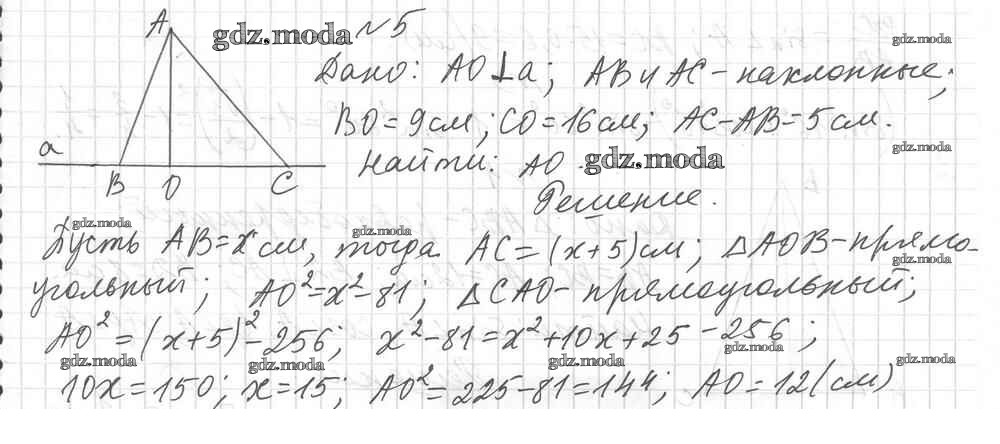 A
gdz.moda №5
gdz.moda
Дано: AO⊥a; AB и AC - наклонные;
BO=9см; CO=16см; AC-AB=5см.
gdz.moda
a
Найти: AO. gdz.moda
B O C
Решение.
gdz.moda gdz.moda
Пусть AB=x см, тогда AC=(x+5)см; △AOB-прямо-
gdz.moda
угольный; AO²=x²-81; △CAO-прямоугольный;
AO²=(x+5)²-256; x²-81=x²+10x+25-256;
gdz.moda gdz.moda gdz.moda gdz.moda
10x=150; x=15; AO²=225-81=144; AO=12(см)